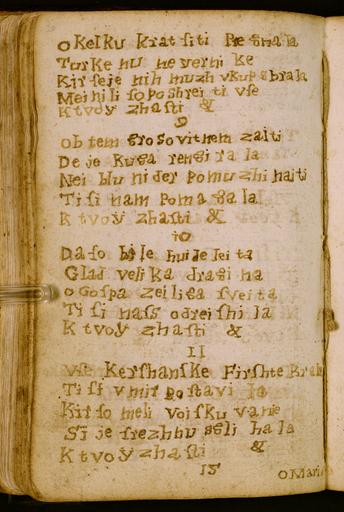 o Kelku krat ſi ti Pre gnala
Turke nu neverni ke
Kir ſe je nih muzh vkup sbrala
Mei ni li ſo po shrei ti vſe
K tvoy zhaſti &
9
ob tem groſovitnem zaiti
De je Kuga rengirala
Nei blu nider pomuzhi haiti
Ti ſi nam pomagala
K tvoy zhaſti &
10
Da ſo bile hui de lei ta
Glad velika dragina
O Goſpa zeiliga ſveita
Ti ſi naſs odreiſhila
K tvoy zhaſti &
11
Vſe Kerſhanſke Firſhte
Ti ſi v mir poſtavila
Kir ſo meli voiſku vanie
Si je ſrezhnu pelihala
K tvoy zhaſti &
o Maria